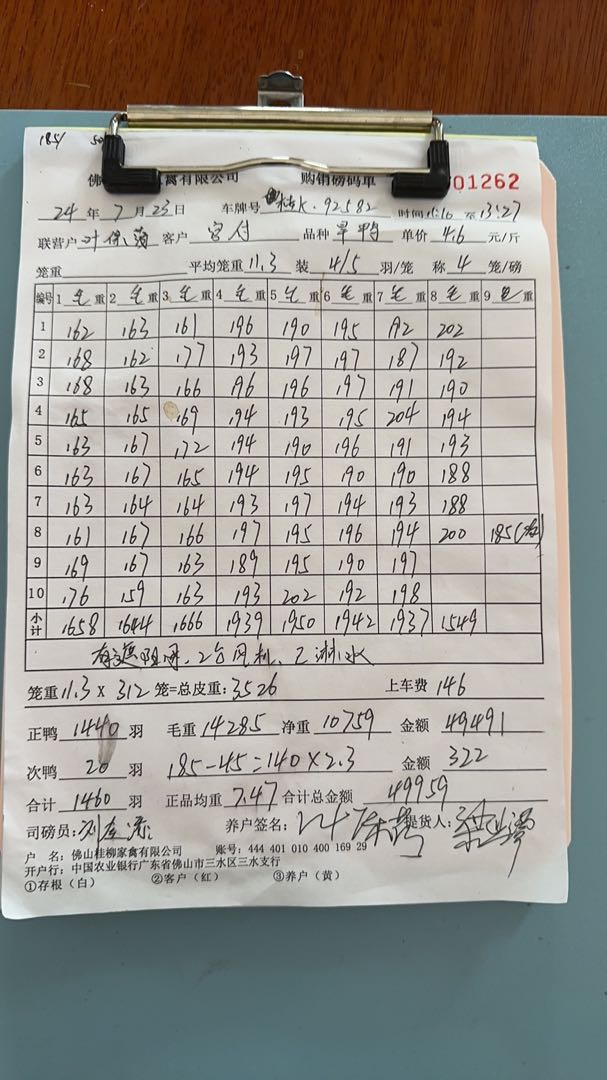 185/ 50
佛 禽有限公司 购销磅码单 01262
24年7月23日 车牌号 桂K·92582 时间 11:16 至 13:27
联营户 叶保 客户 宫付 品种 旱鸭 单价 4.6 元/斤
笼重 平均笼重 11.3 装 4/5 羽/笼 称 4 笼/磅
编号 1 毛重 2 毛重 3 毛重 4 毛重 5 毛重 6 毛重 7 毛重 8 毛重 9 毛重
1 162 163 161 196 190 195 192 202
2 168 162 177 193 197 197 187 192
3 168 163 166 196 196 197 191 190
4 165 165 169 194 193 195 204 194
5 163 167 172 194 190 196 191 193
6 163 167 165 194 195 190 190 188
7 163 164 164 193 197 194 193 188
8 161 167 166 197 195 196 194 200 185(次)
9 169 167 163 189 195 190 197
10 176 159 163 193 202 192 198
小计 1658 1644 1666 1939 1950 1942 1937 1549
有遮阳网、2台风机、已淋水
笼重 11.3 × 312 笼=总皮重: 3526 上车费 146
正鸭 1440 羽 毛重 14285 净重 10759 金额 49491
次鸭 20 羽 185-45=140×2.3 金额 322
合计 1460 羽 正品均重 7.47 合计总金额 49959
司磅员: 养户签名: 提货人:
户 名: 佛山桂柳家禽有限公司 账号: 444 401 010 400 169 29
开户行: 中国农业银行广东省佛山市三水区三水支行
①存根（白） ②客户（红） ③养户（黄）